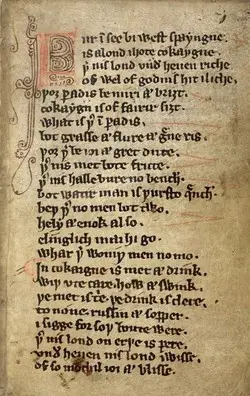 Fur ī see bi west spaygne
is a lond ihote cokaygne
þ̉ nis lond vnd̉ heuen riche
of wel of godnis hit iliche
þoȝ paradis be miri ⁊ briȝt
cokaygn is of fairir siȝt
what is þ̉ ī padis
bot grasse ⁊ flure ⁊ g̉ne ris
þoȝ þ̉ be ioi ⁊ gret dute
þ̉ nis met bote frute
þ̉ nis halle bure no bench
bot watir man is þursto q̄nch
beþ þ̉ no men bot two
hely ⁊ enok also
elinglich mai hi go
whar þ̉ woniþ men no mo
In cokaigne is met ⁊ drink
wiþ vte care how ⁊ swink
þe met is trie þe drink is clere
to none russin ⁊ sopper
i sigge for soþ boute were
þ̉ nis lond on erþe is pere
vnd̉ heuen nis lond iwisse
of so mochil ioi ⁊ blisse